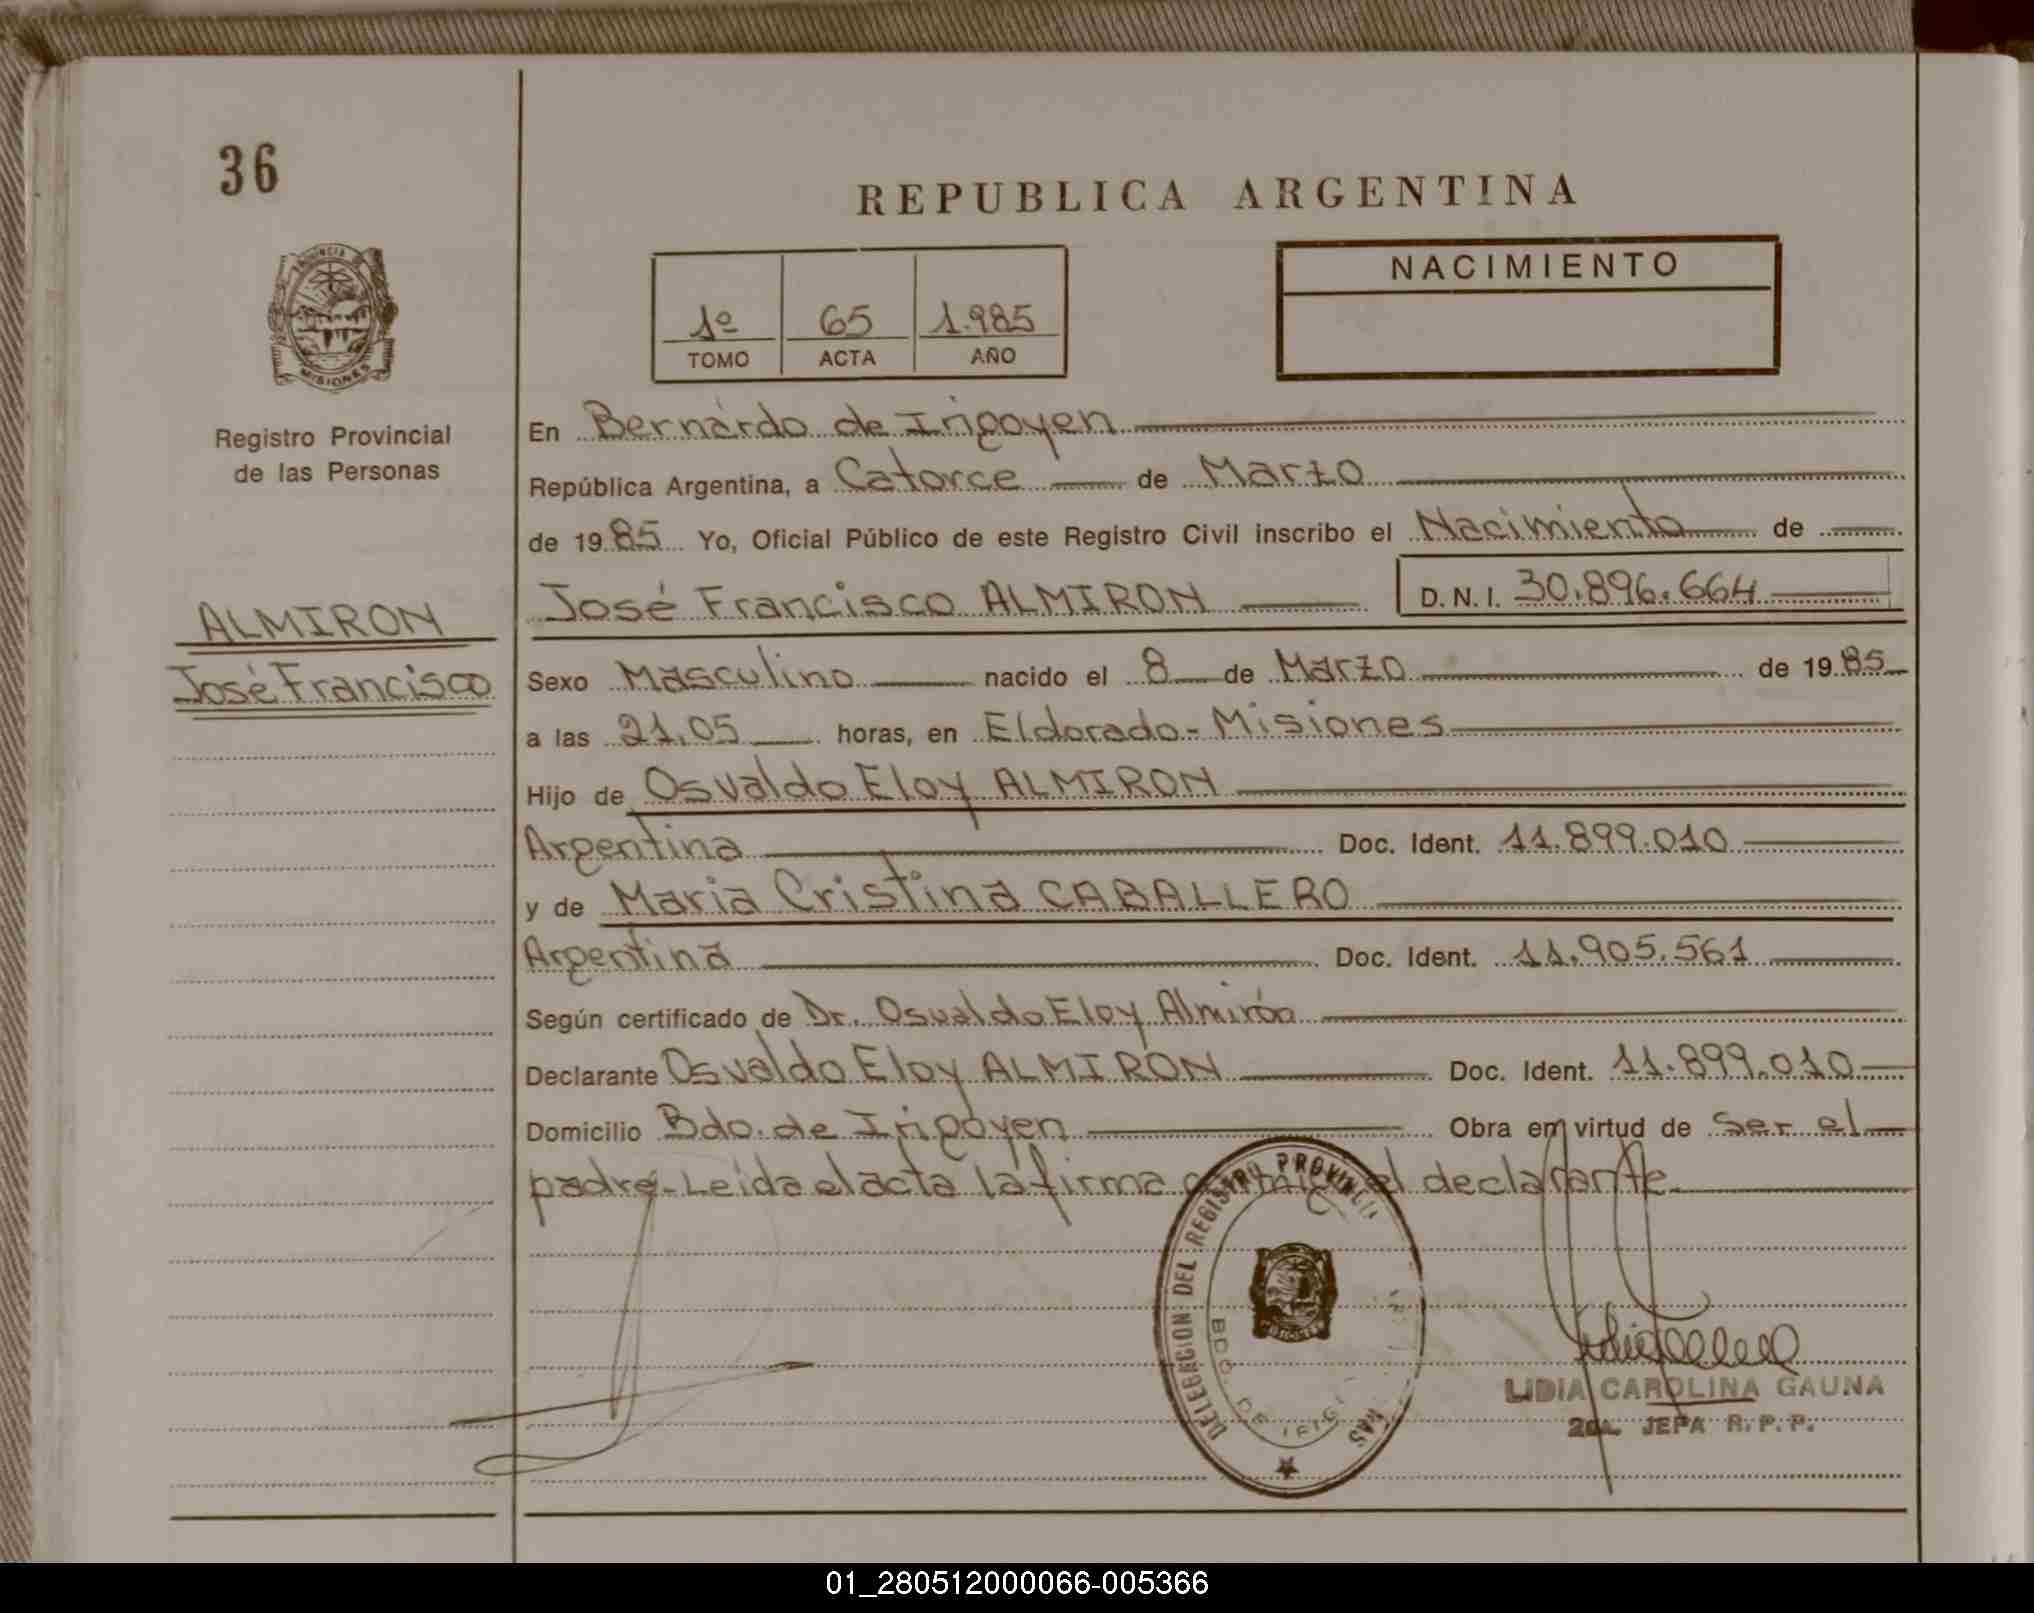 36
REPUBLICA ARGENTINA
PROVINCIA DE
MISIONES
NACIMIENTO
1º 65 1.985
TOMO ACTA AÑO
Registro Provincial
de las Personas
En Bernardo de Irigoyen
República Argentina, a Catorce de Marzo
de 1985 Yo, Oficial Público de este Registro Civil inscribo el Nacimiento de
José Francisco ALMIRON D.N.I. 30.896.664
ALMIRON
José Francisco
Sexo Masculino nacido el 8 de Marzo de 1985
a las 21,05 horas, en Eldorado - Misiones
Hijo de Osvaldo Eloy ALMIRON
Argentina Doc. Ident. 11.899.010
y de Maria Cristina CABALLERO
Argentina Doc. Ident. 11.905.561
Según certificado de Dr. Osvaldo Eloy Almirón
Declarante Osvaldo Eloy ALMIRÓN Doc. Ident. 11.899.010
Domicilio Bdo. de Irigoyen Obra en virtud de Ser el
padre - Leida el acta la firma conmigo el declarante
DELEGACION DEL REGISTRO PROVINCIAL
BDO. DE IRIG
LIDIA CAROLINA GAUNA
2da. JEFA R.P.P.
01_280512000066-005366